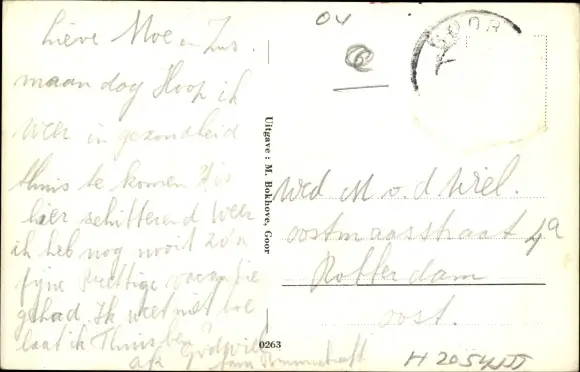 04
GOOR
6
Lieve Moe en Zus.
maandag Hoop ik
weer in gezondheid
thuis te komen 't is
hier schitterend weer
ik heb nog nooit zo'n
fijne Prettige vacantie
gehad. Ik weet niet hoe
laat ik Thuis ben?
Uitgave : M. Bokhove, Goor
Wed M v.d Wiel.
oostmaasstraat 4a
Rotterdam
oost.
0263
H 2054